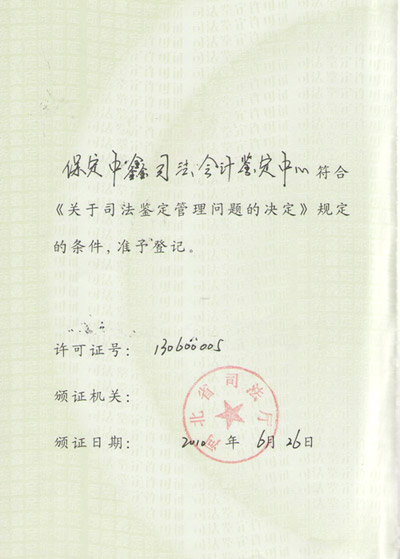 保定中鑫司法会计鉴定中心符合
《关于司法鉴定管理问题的决定》规定
的条件，准予登记。
许可证号：130600005
颁证机关：
河北省司法厅
颁证日期：2010年6月26日